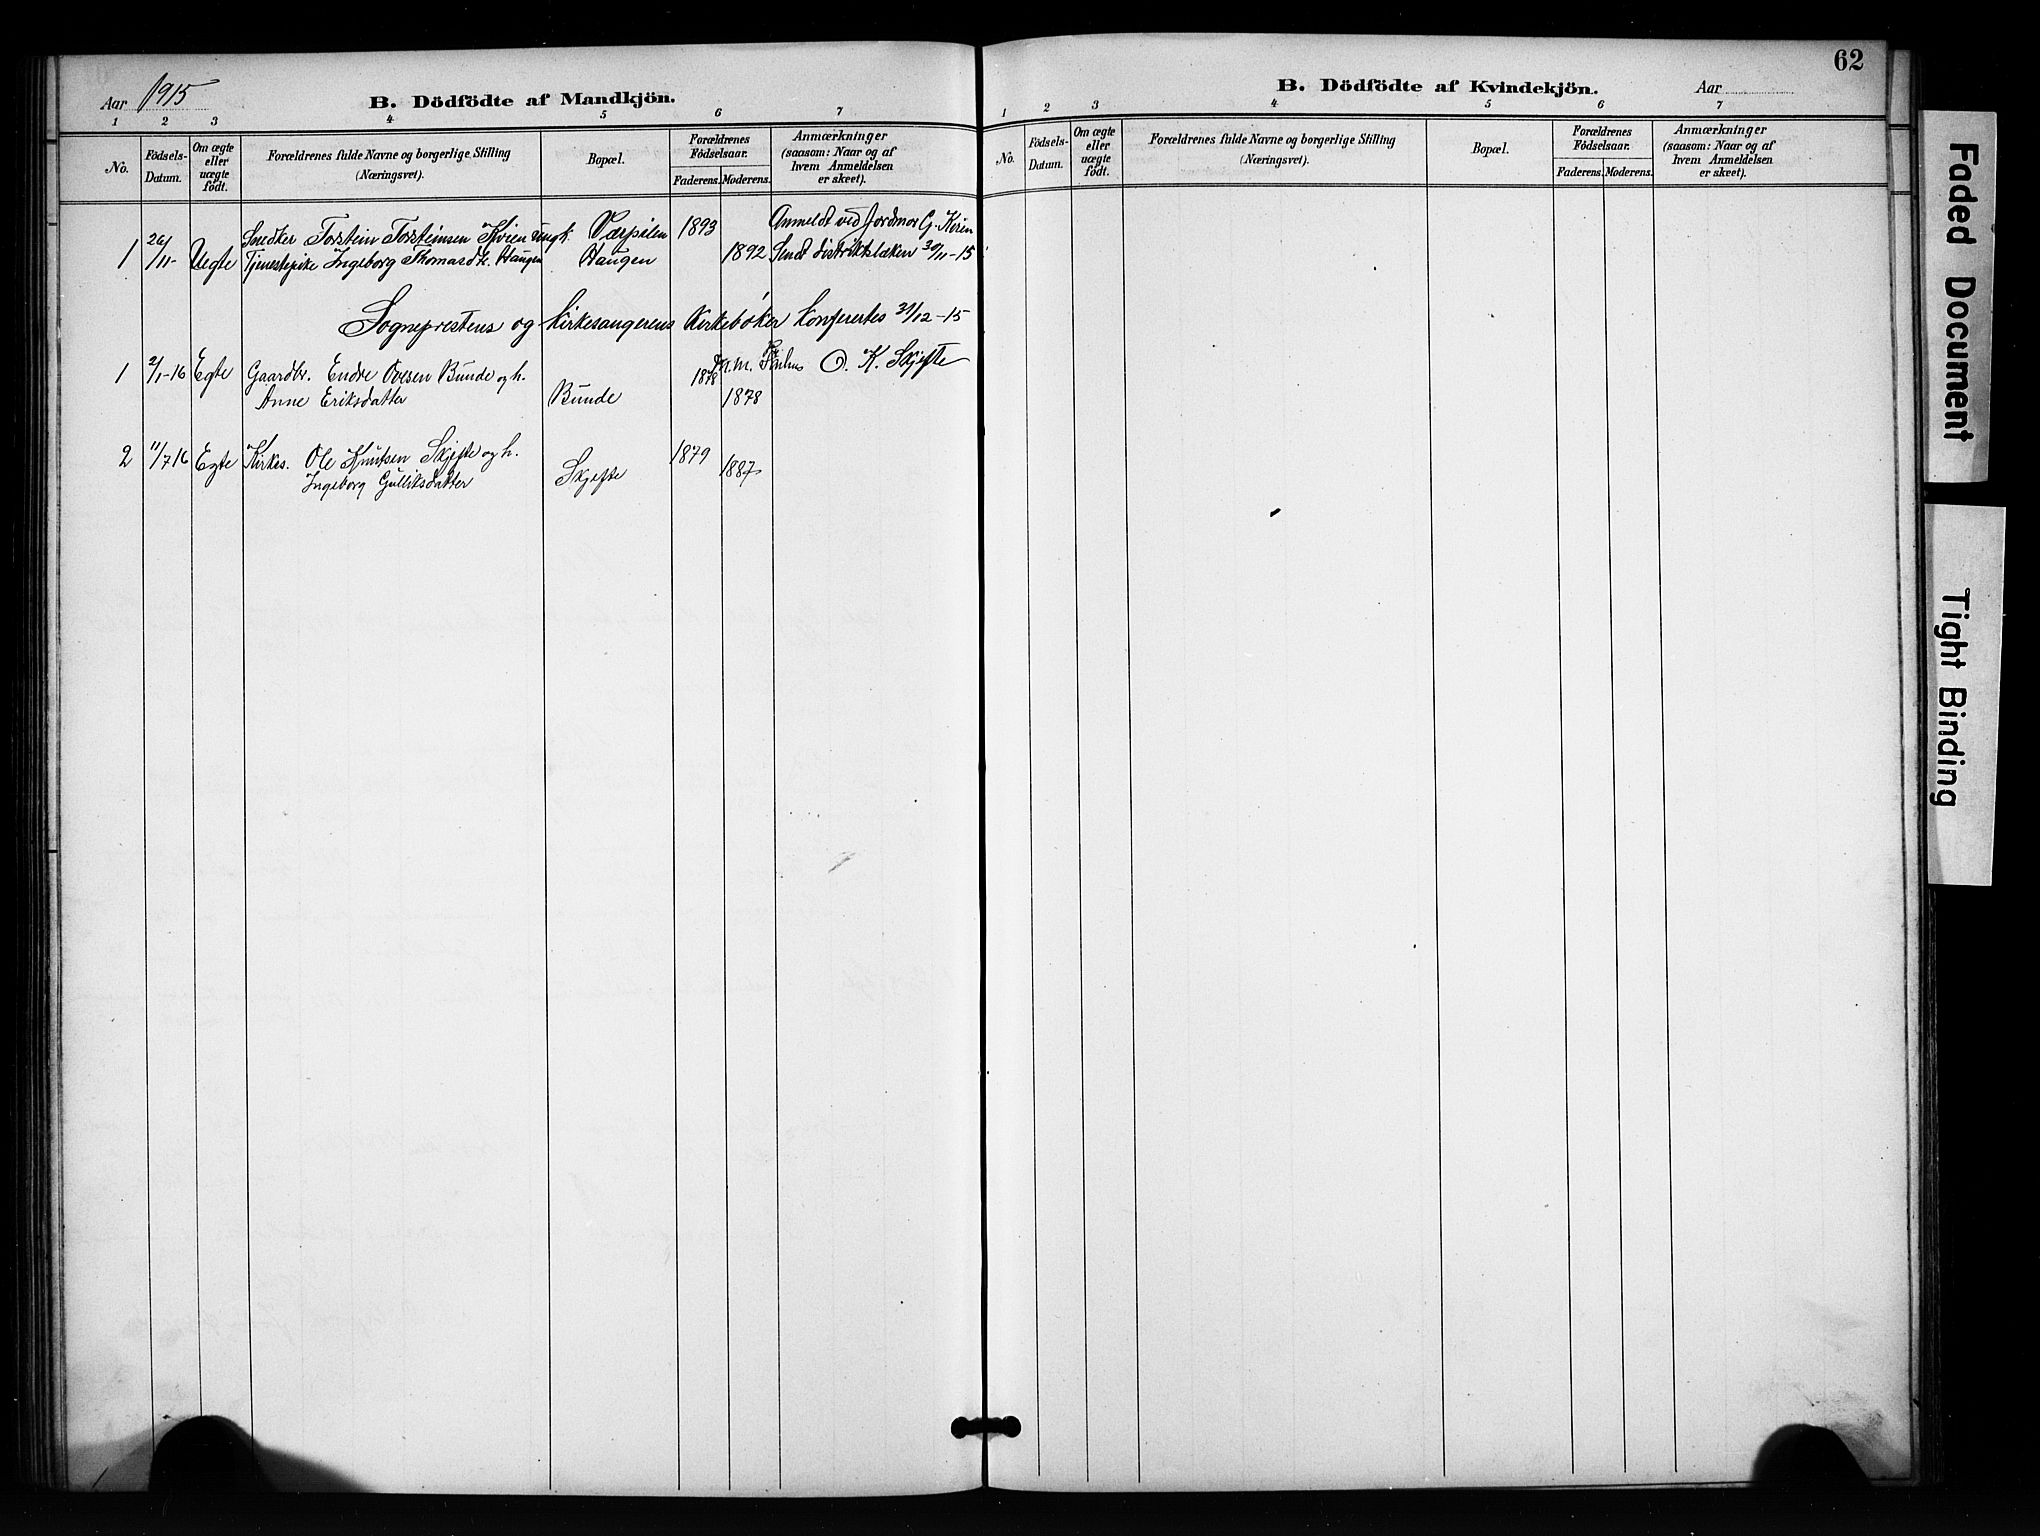 Aar 1915
B. Dödfödte af Mandkjön.
1 2 3 4 5 6 7
No. Födsels-Datum. Om ægte eller uægte födt. Forældrenes fulde Navne og borgerlige Stilling (Næringsvei). Bopæl. Forældrenes Födselsaar. Faderens. Moderens. Anmærkninger (saasom: Naar og af hvem Anmeldelsen er skeet).
Snedker Torstein Torsteinsen Kvien ungk. 1893 Anmeldt ved Jordmor G. Kørin
1 26/11- Uegte Tjenestepike Ingeborg Thomasdtr. Haugen Haugen 1892 Sendt distriktslæken 30/11-15
Sogneprestens og Kirkesangerens Kirkebøker konferertes 31/12-15
O. K. Skjefte
1 2/1-16 Egte Gaardbr. Endre Ovesen Bunde og h. 1878
Anne Eriksdatter Bunde 1878
2 11/7 16 Egte Kirkes. Ole Knutsen Skjefte og h. 1879
Ingeborg Gulliksdatter Skjefte 1887
62
B. Dödfödte af Kvindekjön.
Aar
1 2 3 4 5 6 7
No. Födsels-Datum. Om ægte eller uægte födt. Forældrenes fulde Navne og borgerlige Stilling (Næringsvei). Bopæl. Forældrenes Födselsaar. Faderens. Moderens. Anmærkninger (saasom: Naar og af hvem Anmeldelsen er skeet).
Faded Document
Tight Binding